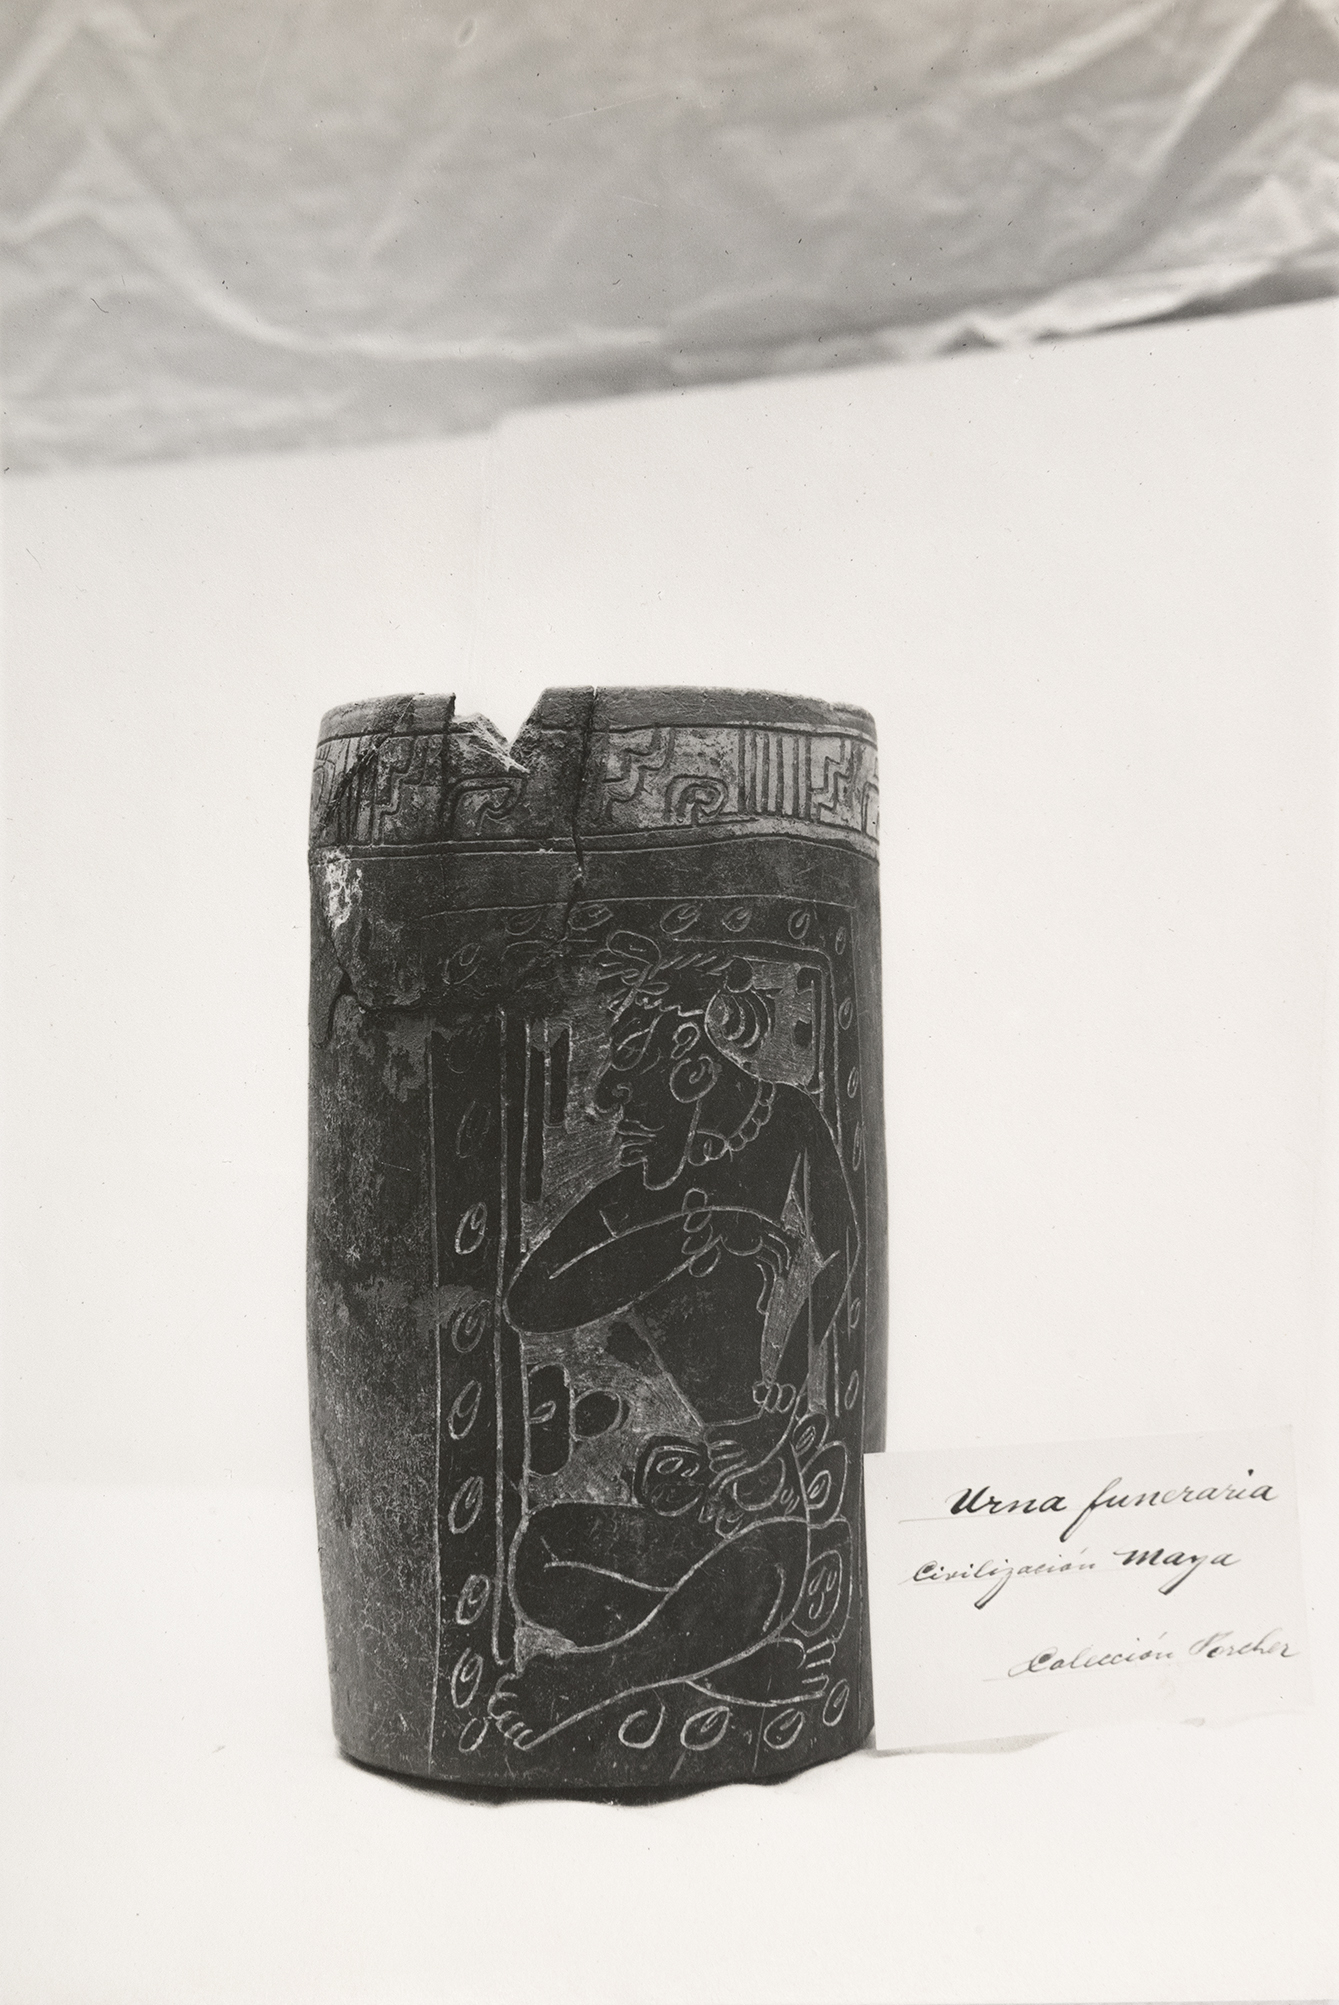 Urna funeraria
Civilización Maya
Colección Porcher